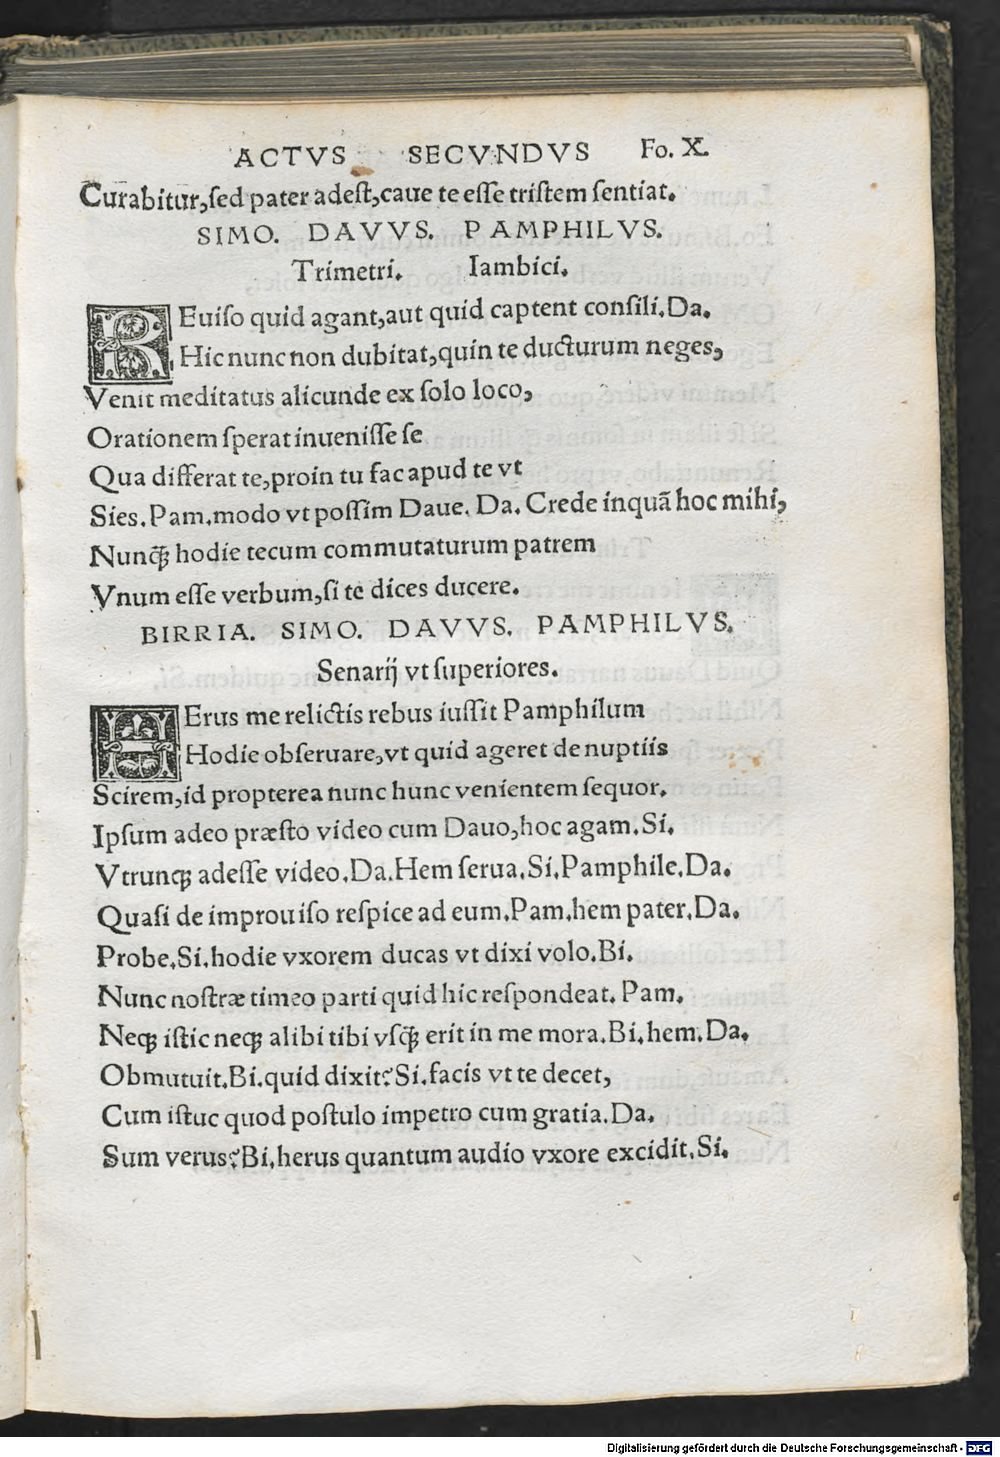 ACTVS SECVNDVS Fo. X.
Curabitur,ſed pater adeſt,caue te eſſe triſtem ſentiat.
SIMO. DAVVS. PAMPHILVS.
Trimetri. Iambici.
REuiſo quid agant,aut quid captent conſili.Da.
Hic nunc non dubitat,quin te ducturum neges,
Venit meditatus alicunde ex ſolo loco,
Orationem ſperat inueniſſe ſe
Qua differat te,proin tu fac apud te vt
Sies.Pam.modo vt poſſim Daue. Da. Crede inquã hoc mihi,
Nunꝙ̃ hodie tecum commutaturum patrem
Vnum eſſe verbum,ſi te dices ducere.
BIRRIA. SIMO. DAVVS. PAMPHILVS.
Senarij vt ſuperiores.
HErus me relictis rebus iuſſit Pamphilum
Hodie obſeruare,vt quid ageret de nuptiis
Scirem,id propterea nunc hunc venientem ſequor.
Ipſum adeo præſto video cum Dauo,hoc agam.Si.
Vtrunꝙ adeſſe video.Da.Hem ſerua.Si.Pamphile.Da.
Quaſi de improuiſo reſpice ad eum.Pam.hem pater.Da.
Probe.Si.hodie vxorem ducas vt dixi volo.Bi.
Nunc noſtræ timeo parti quid hic reſpondeat. Pam.
Neꝙ iſtic neꝙ alibi tibi vſꝙ̃ erit in me mora.Bi.hem.Da.
Obmutuit.Bi.quid dixit?Si.facis vt te decet,
Cum iſtuc quod poſtulo impetro cum gratia.Da.
Sum verus?Bi.herus quantum audio vxore excidit.Si.
Digitalisierung gefördert durch die Deutsche Forschungsgemeinschaft - DFG